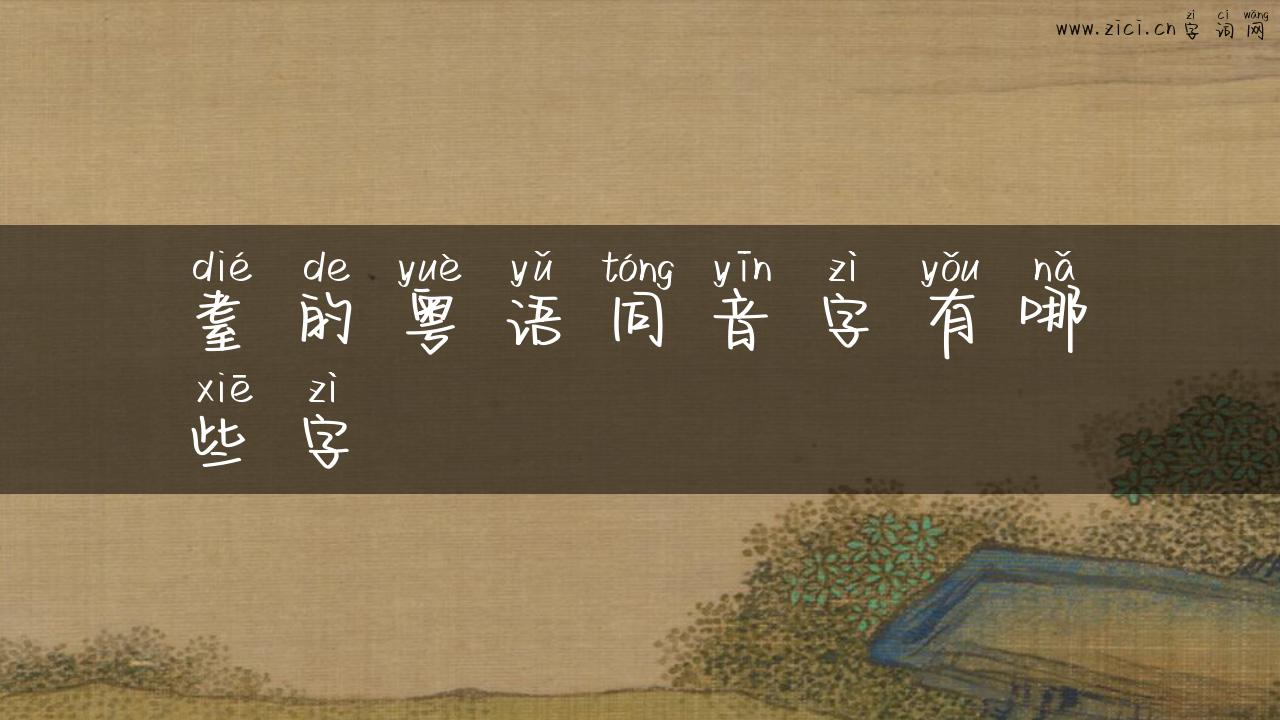 zì cí wǎng
www.zici.cn 字 词 网
dié de yuè yǔ tóng yīn zì yǒu nǎ
耋 的 粤 语 同 音 字 有 哪
xiē zì
些 字